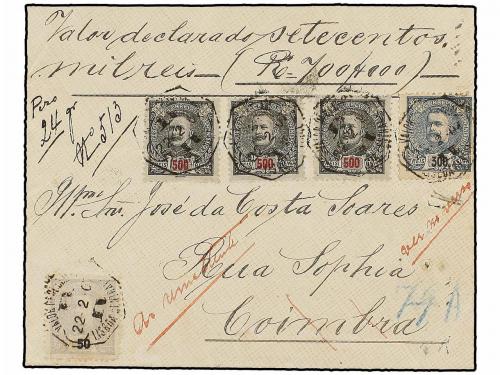 Valor declarado setecentos
mil reis — (Rs 700$000) —
Peso
24 gr
Nº 513
500
500
500
500
Illmo. Snr. José da Costa Soares
Rua Sophia
Coimbra
Ao remetente
ver no verso
22-2
LISBOA
50